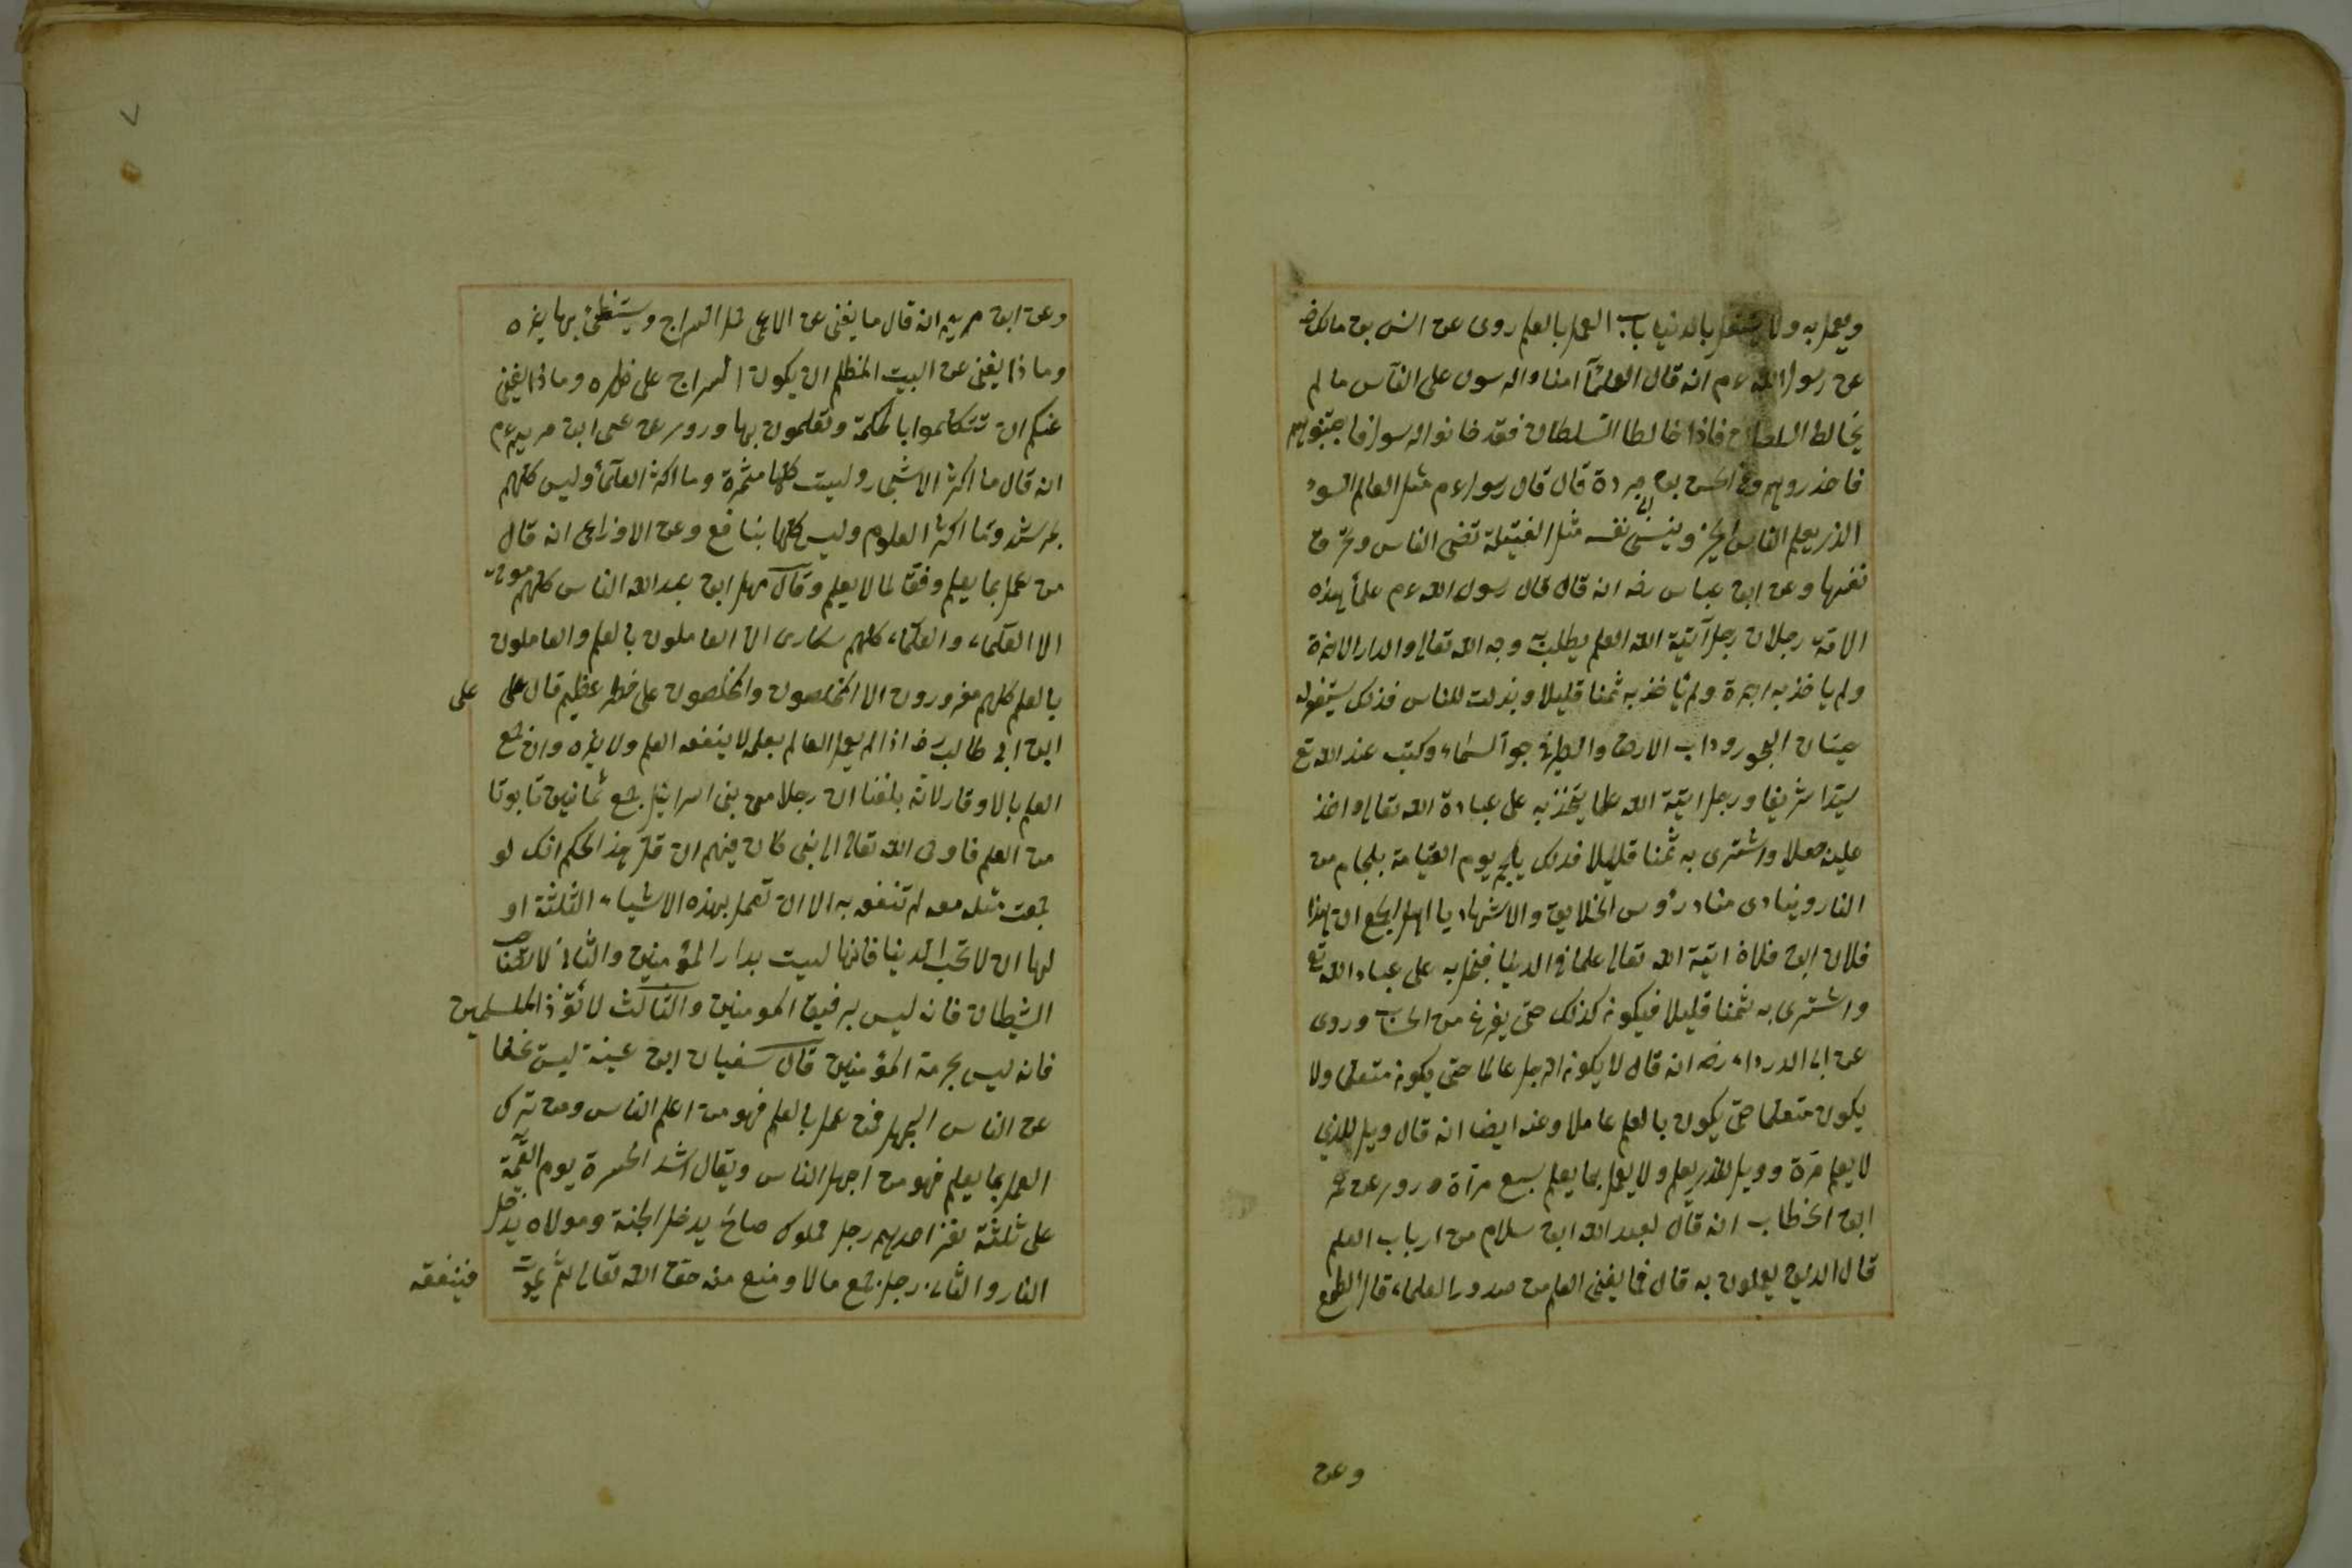 ويعمل به ولا يشتغل بالدنيا باب العمل بالعلم روى عن انس بن مالك رض
عن رسول الله عم انه قال العلمآ امناء الرسول على النآس ما لم
يخالط السلطان فاذا خالطا السلطان فقد خانوا الرسول فاجتنبوهم
فاحذروهم وعن الحسن بن بردة قال قال رسول عم مثل العالم السوء
الذى يعلم الناس الخير وينسى نفسه مثل الفتيلة تضى الناس وتحرق
نفسها وعن ابن عباس رضه انه قال قال رسول الله عم علمأ هذه
الامة رجلان رجل آتية الله العلم يطلب وجه الله تعالى والدار الاخرة
ولم ياخذ به اجرة ولم ياخذ به ثمنا قليلا وبذلت للناس فذلك يستغفر له
حيتان البحور ودابب الارض والطير فى جو السماء وكتب عند الله تع
سيدا شريفا ورجل اتية الله علما يتخذ به على عبادة الله تعالى واخذ
علين جعلا واشترى به ثمنا قليلا فذلك يلجم يوم القيامة بلجام من
النار وينادى مناد رؤس الخلايق والاشهاد يا اهل الجمع ان هذا
فلان ابن فلان اتية الله تعالى علما فى الدنيا فبخل به على عباد الله تع
واشترى به ثمنا قليلا فيكونه كذلك حتى يفرغ من الحساب وروى
عن ابى الدرداء رضه انه قال لا يكونه الرجل عالما حتى يكونه متعلما ولا
يكون متعلما حتى يكون بالعلم عاملا وعنه ايضا انه قال ويل للذى
لا يعلم مرة وويل للذى يعلم ولا يعمل بما يعلم سبع مرآة وروى عن عمر
ابن الخطاب انه قال لعبد الله ابن سلام من ارباب العلم
قال الذين يعملون به قال فما يغنى العلم من صدور العلماء قال الطمع
وعن
وعن ابن مريم انه قال ما يغنى عن الاعمى حمل السراج ويستضئ بها غيره
وماذا يغنى عن البيت المظلم ان يكون السراج على ظهره وماذا يغنى
عنكم ان تتكلموا بالحكمة وتعلمون بها وروى عن عسى ابن مريم عم
انه قال ما اكثر الاشجار وليست كلها مثمرة وما اكثر العلمأ وليس كلهم
بمرشد وما اكثر العلوم وليس كلها بنافع وعن الاوزاعى انه قال
من عمل بما يعلم وفق لما لا يعلم وقال سهل ابن عبد الله الناس كلهم موتى
الا العلماء والعلماء كلهم سكارى الا العاملون بالعلم والعاملون
بالعلم كلهم مغرورون الا المخلصون والمخلصون على خطر عظيم قال على
على
ابن ابى طالب رض اذا لم يعمل العالم بعلمه لا ينفعه العلم ولا غيره وان جمع
العلم بالاوقار لانه بلغنا ان رجلا من بنى اسرائيل جمع ثمانين تابوتا
من العلم فاوحى الله تعالى الى نبى كان فيهم ان قل هذا الحكم انك لو
جمعت مثله معه لم تنفعه به الا ان تعمل بهذه الاشياء الثلثة او
لها ان لا تحب الدنيا فانها ليست بدار المؤمنين والثانى لا تصاحب
الشيطان فانه ليس برفيق المومنين والثالث لا تؤذ المسلمين
فانه ليس بحرمة المؤمنين قال سفيان ابن عينة ليس
عن الناس الجهل فمن عمل بالعلم فهو من اعلم الناس ومن ترك
العمل بما يعلم فهو من اجهل الناس ويقال اشد الحسرة يوم القيمة
على ثلثة نفر احدهم رجل مملوك صالح يدخل الجنة ومولاه يدخل
النار والثانى رجل جمع مالا ومنع منه حق الله تعالى ثم يموت
فينفقه
٧